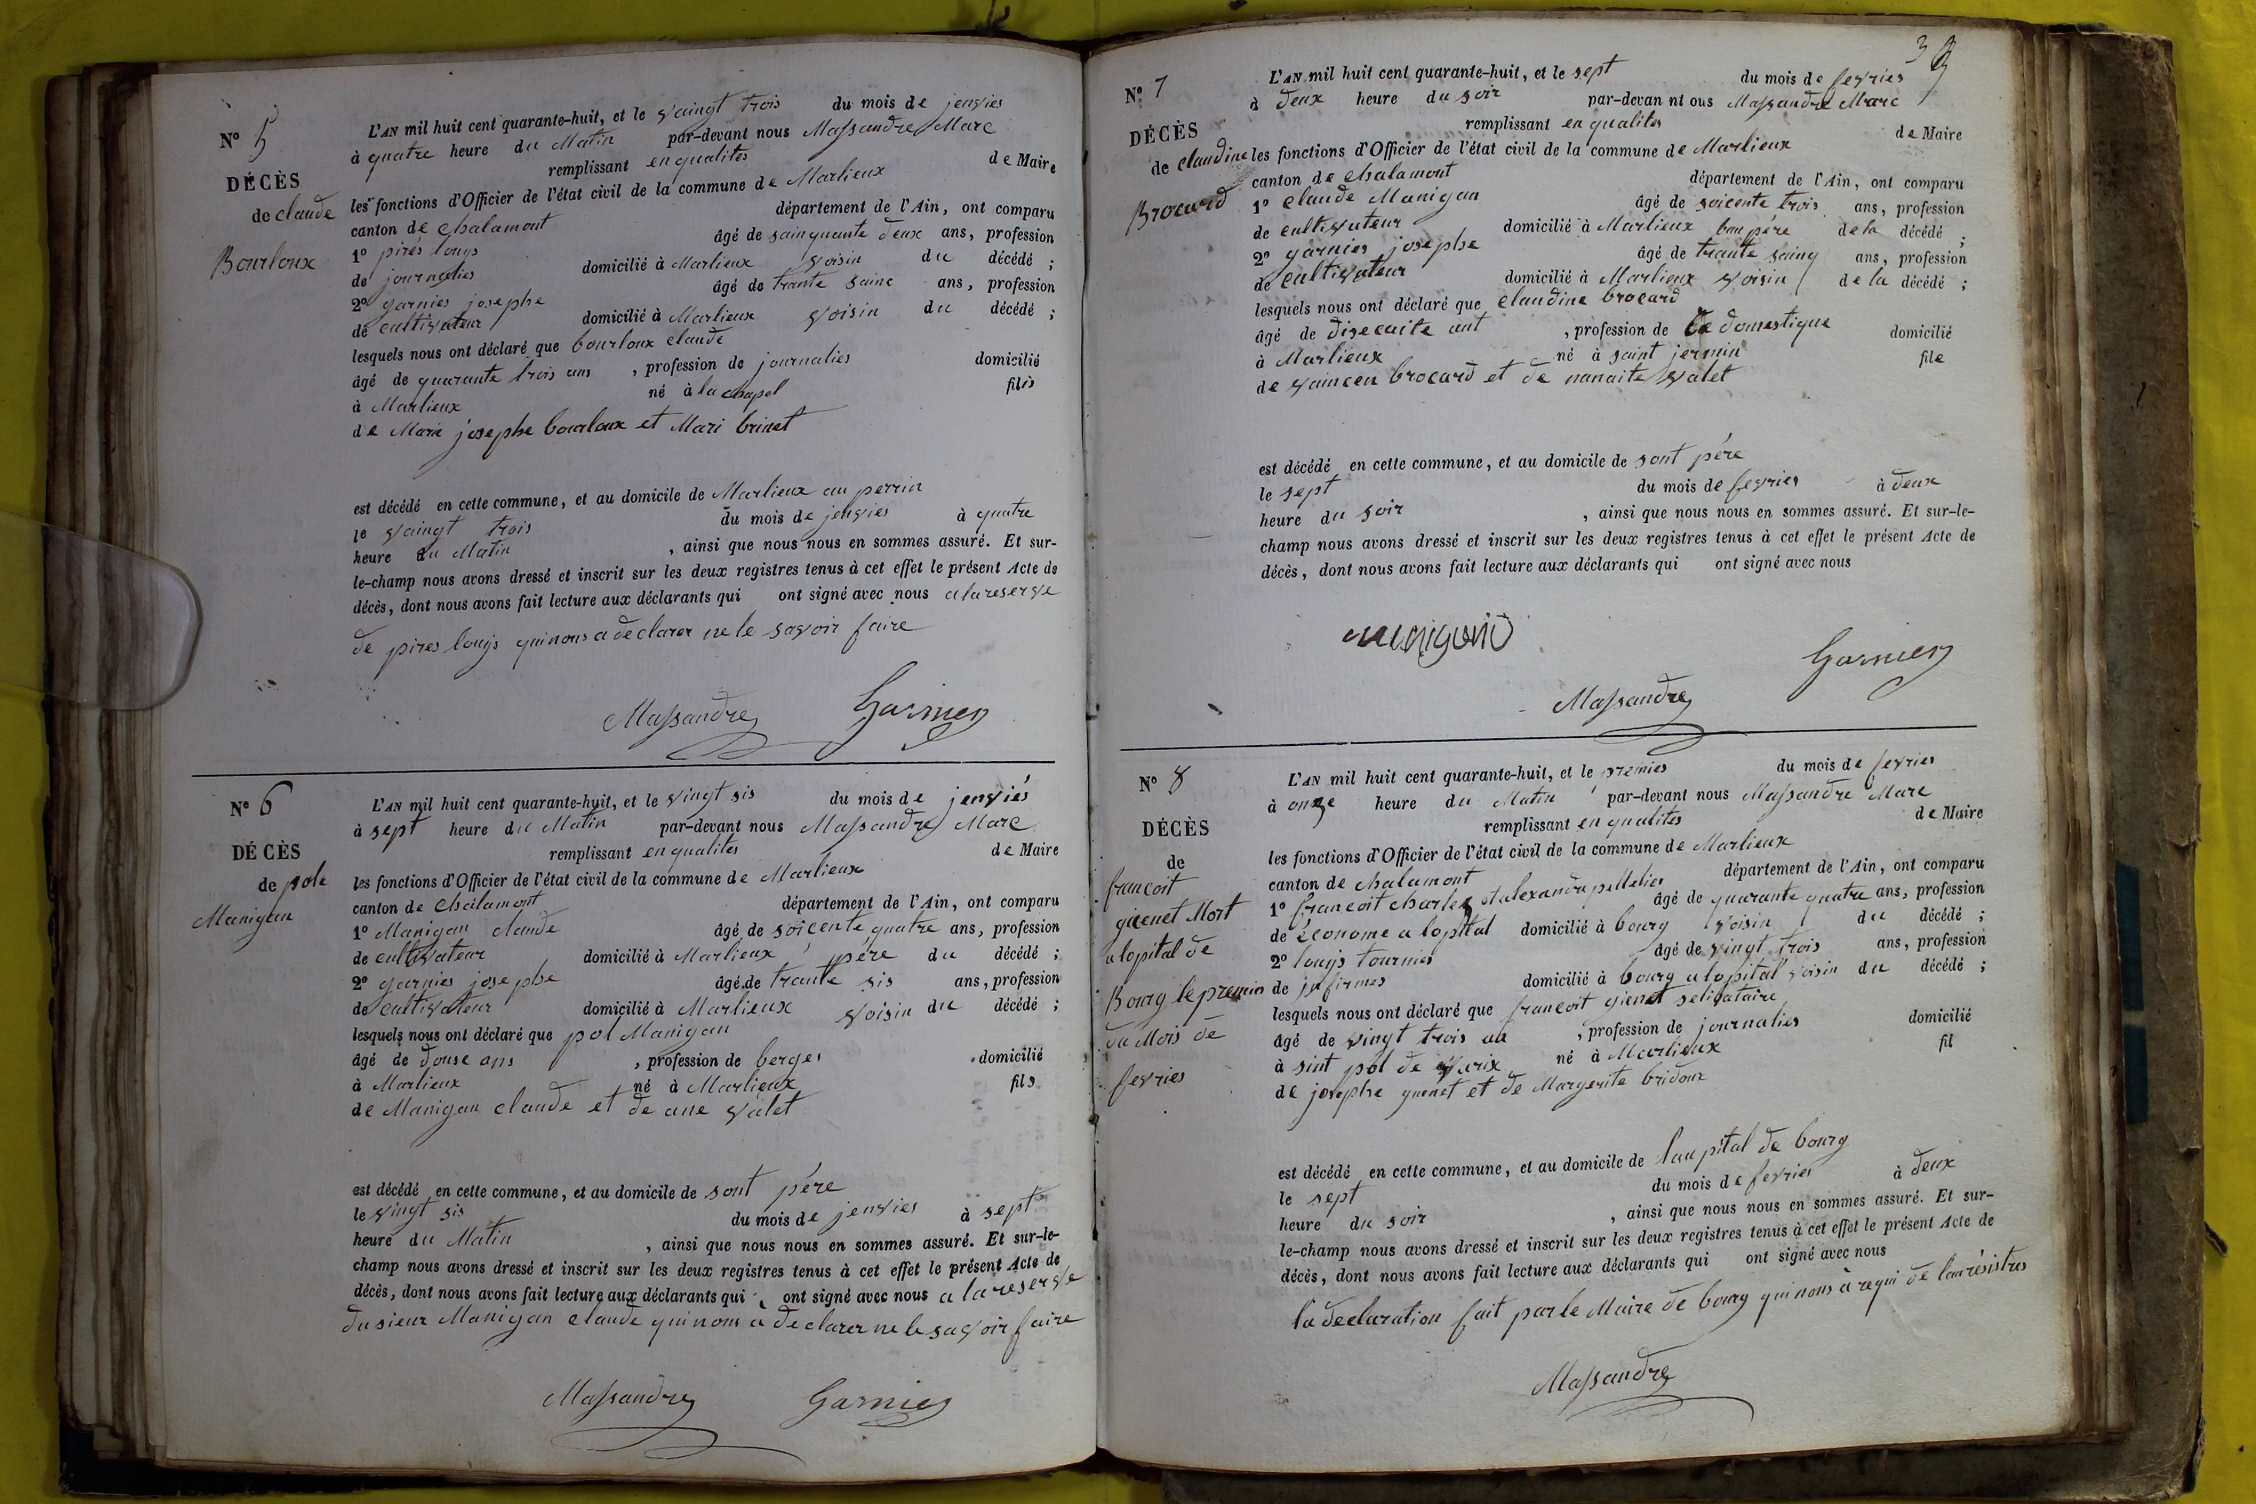 N° 5
DÉCÈS
de claude
Bourloux
L'AN mil huit cent quarante-huit, et le vaingt trois du mois de jenvies
à quatre heure du Matin par-devant nous Massandre Marc
remplissant en qualites de Maire
les fonctions d'Officier de l'état civil de la commune de Marlieux
canton de chalamont département de l'Ain, ont comparu
1° pirés louys âgé de sainquante deux ans, profession
de journalies domicilié à Marlieux voisin du décédé ;
2° garnies josephe âgé de trante sainc ans, profession
de cultivateur domicilié à Marlieux voisin du décédé ;
lesquels nous ont déclaré que bourloux claude
âgé de quarante trois ans , profession de journalies domicilié
à Marlieux né à la chapel fils
de Marie josephe bourloux et Mari brinet
est décédé en cette commune, et au domicile de Marlieux au perrin
le vaingt trois du mois de jenvies à quatre
heure du Matin , ainsi que nous nous en sommes assuré. Et sur-
le-champ nous avons dressé et inscrit sur les deux registres tenus à cet effet le présent Acte de
décès, dont nous avons fait lecture aux déclarants qui ont signé avec nous a la reserve
de pires louys qui nous a declarer ne le savoir faire
Massandre Garnier
N° 6
DÉCÈS
de pole
Manigan
L'AN mil huit cent quarante-huit, et le vingt sis du mois de jenviés
à sept heure du Matin par-devant nous Massandre Marc
remplissant en qualites de Maire
les fonctions d'Officier de l'état civil de la commune de Marlieux
canton de Chalamont département de l'Ain, ont comparu
1° Manigan claude âgé de soicente quatre ans, profession
de cultivateur domicilié à Marlieux père du décédé ;
2° garnies josephe âgé de trante sis ans, profession
de cultivateur domicilié à Marlieux voisin du décédé ;
lesquels nous ont déclaré que pol Manigan
âgé de douse ans , profession de berges domicilié
à Marlieux né à Marlieux fils
de Manigan claude et de ane valet
est décédé en cette commune, et au domicile de sont père
le vingt sis du mois de jenvies à sept
heure du Matin , ainsi que nous nous en sommes assuré. Et sur-le-
champ nous avons dressé et inscrit sur les deux registres tenus à cet effet le présent Acte de
décès, dont nous avons fait lecture aux déclarants qui ont signé avec nous a la reserve
du sieur Manigan claude qui nous a declarer ne le savoir faire
Massandre Garnier
N° 7
DÉCÈS
de claudine
Brocard
L'AN mil huit cent quarante-huit, et le sept du mois de fevries
à deux heure du soir par-devan nt ous Massandre Marc
remplissant en qualites de Maire
les fonctions d'Officier de l'état civil de la commune de Marlieux
canton de chalamont département de l'Ain, ont comparu
1° claude Manigan âgé de soicente trois ans, profession
de cultivateur domicilié à Marlieux bau pére de la décédé ;
2° garnies josephe âgé de trante sainq ans, profession
de cultivateur domicilié à Marlieux voisin de la décédé ;
lesquels nous ont déclaré que claudine brocard
âgé de disecuite ant , profession de domestique domicilié
à Marlieux né à saint jermin file
de vaincen brocard et de nanaite valet
est décédé en cette commune, et au domicile de sont pére
le sept du mois de fevries à deux
heure du soir , ainsi que nous nous en sommes assuré. Et sur-le-
champ nous avons dressé et inscrit sur les deux registres tenus à cet effet le présent Acte de
décès, dont nous avons fait lecture aux déclarants qui ont signé avec nous
manigand Garnier
Massandre
N° 8
DÉCÈS
de
francoit
guenet Mort
a lopital de
Bourg le premies
du Mois de
fevries
L'AN mil huit cent quarante-huit, et le premies du mois de fevries
à onze heure du Matin par-devant nous Massandre Marc
remplissant en qualites de Maire
les fonctions d'Officier de l'état civil de la commune de Marlieux
canton de chalamont département de l'Ain, ont comparu
1° francoit charles alexandre pelletier âgé de quarante quatre ans, profession
de économe a lopital domicilié à bourg voisin du décédé ;
2° louys tournies âgé de vingt trois ans, profession
de jnfirmes domicilié à bourg a lopital voisin du décédé ;
lesquels nous ont déclaré que francoit guenet selibataire
âgé de vingt trois an , profession de journalies domicilié
à sint pol de varix né à Marlieux fil
de josephe guenet et de Margerite bridoux
est décédé en cette commune, et au domicile de laupital de bourg
le sept du mois de fevries à deux
heure du soir , ainsi que nous nous en sommes assuré. Et sur-
le-champ nous avons dressé et inscrit sur les deux registres tenus à cet effet le présent Acte de
décès, dont nous avons fait lecture aux déclarants qui ont signé avec nous
la declaration fait par le Maire de bourg qui nous à requi de lanrésistres
Massandre